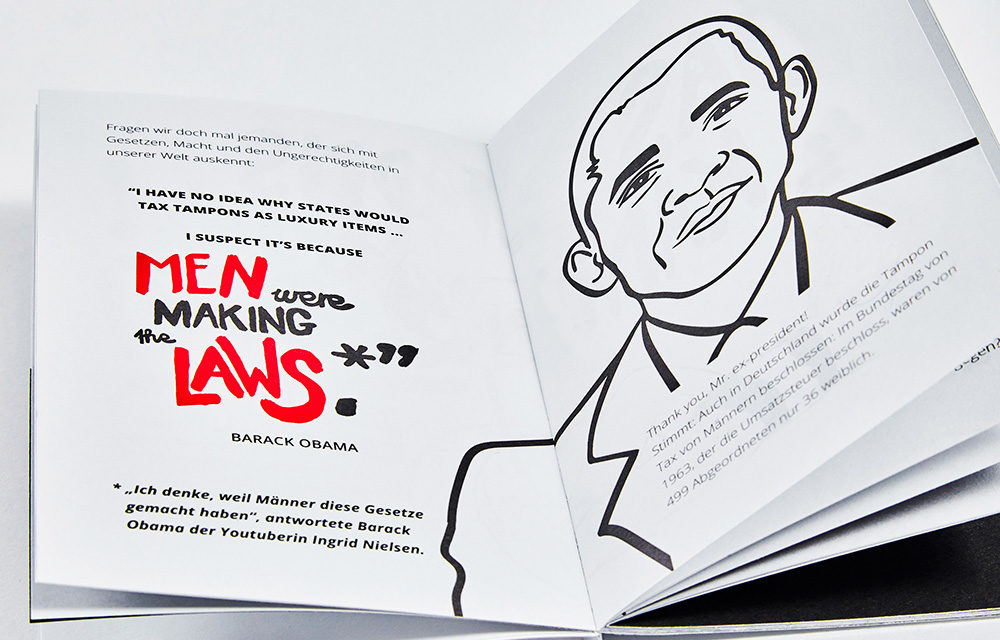 Fragen wir doch mal jemanden, der sich mit
Gesetzen, Macht und den Ungerechtigkeiten in
unserer Welt auskennt:
“I HAVE NO IDEA WHY STATES WOULD
TAX TAMPONS AS LUXURY ITEMS ...
I SUSPECT IT’S BECAUSE
MEN were
MAKING
the
LAWS. *”
BARACK OBAMA
* „Ich denke, weil Männer diese Gesetze
gemacht haben“, antwortete Barack
Obama der Youtuberin Ingrid Nielsen.
Thank you, Mr. ex-president!
Stimmt: Auch in Deutschland wurde die Tampon
Tax von Männern beschlossen: Im Bundestag von
1963, der die Umsatzsteuer beschloss, waren von
499 Abgeordneten nur 36 weiblich.